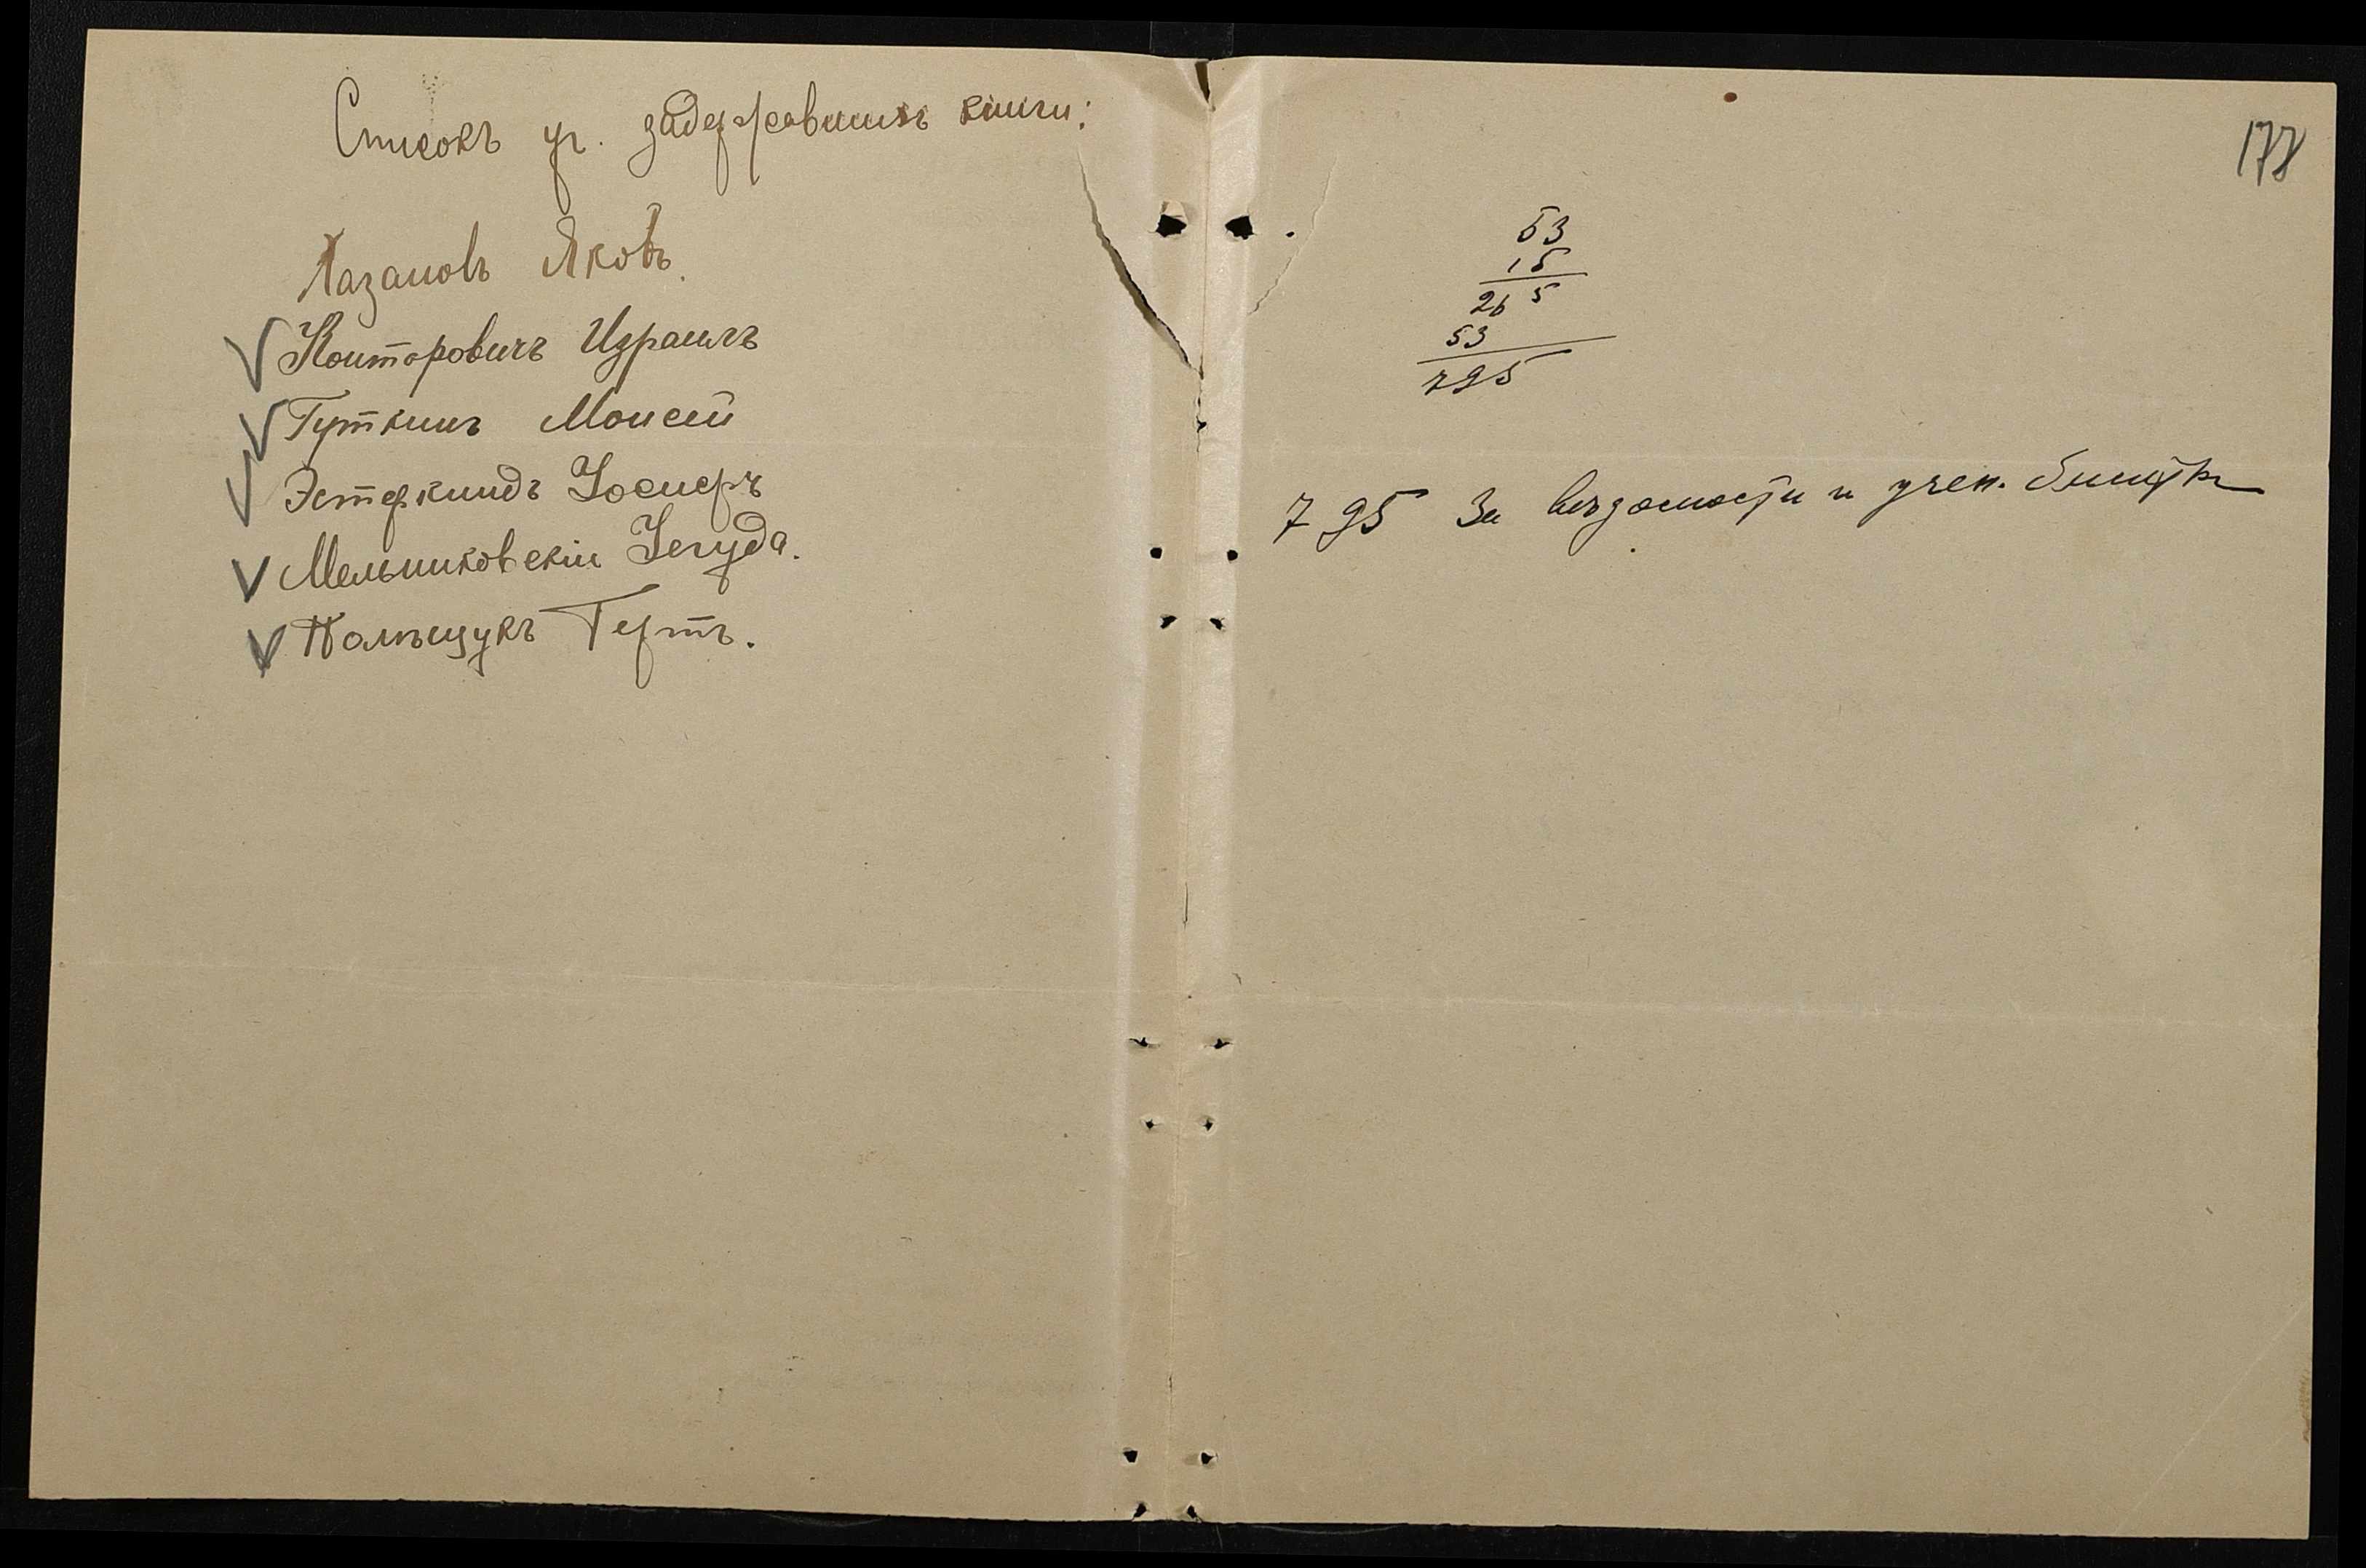 Списокъ уч. задержавшихъ книги:
Хазановъ Яковъ.
Канторовичъ Израиль
Гуткинъ Моисей
Эстеркиндъ Іосифъ
Мельниковскій Іегуда.
Полищукъ Герть.
178
53
15
265
53
795
795 За вѣдомости и учен. билеты